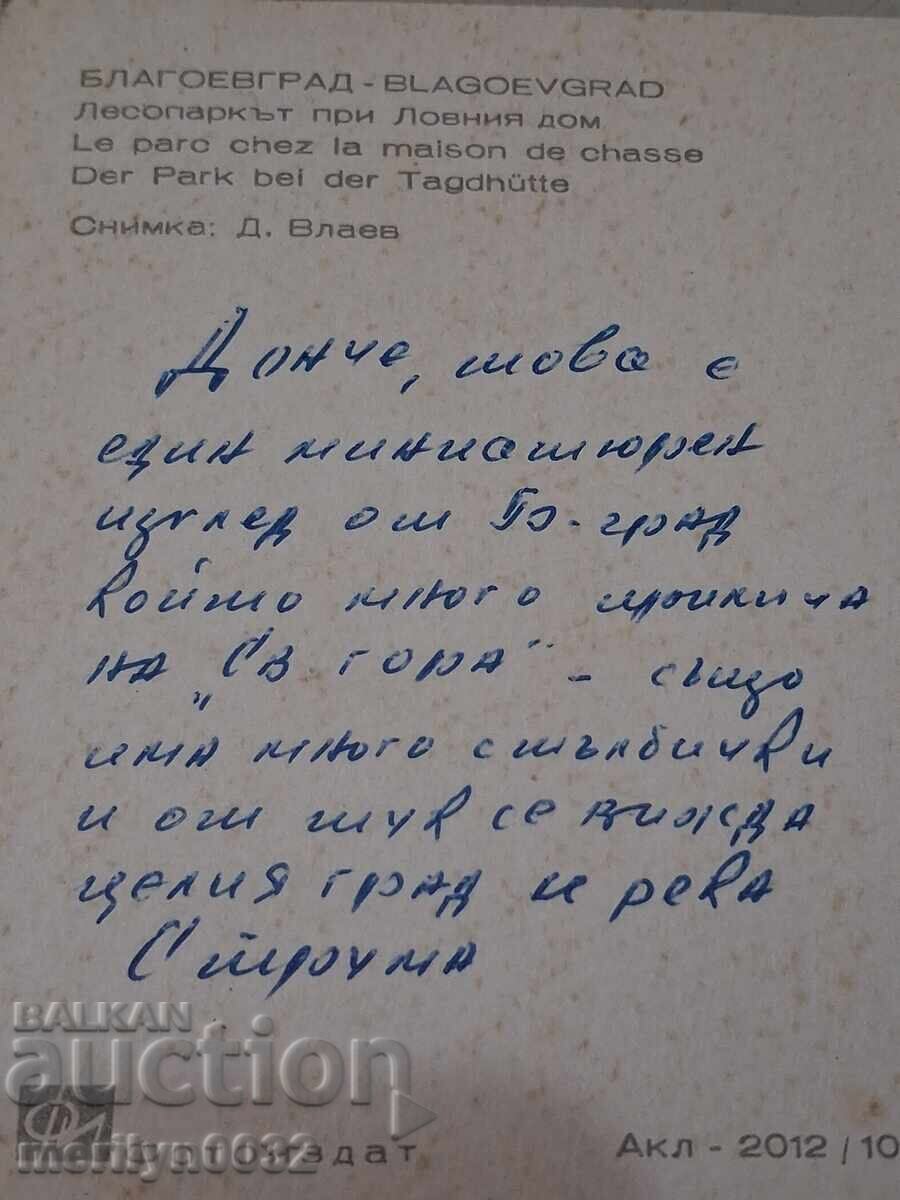 БЛАГОЕВГРАД - BLAGOEVGRAD
Лесопаркът при Ловния дом
Le parc chez la maison de chasse
Der Park bei der Tagdhütte
Снимка: Д. Влаев
Донче, това е
един миниатюрен
изглед от Бл-град
който много прилича
на „Св гора" - също
има много стълбички
и от тук се вижда
целия град и река
Струма
BALKAN
auction
merilyn0032
Фотоиздат
Акл - 2012/10